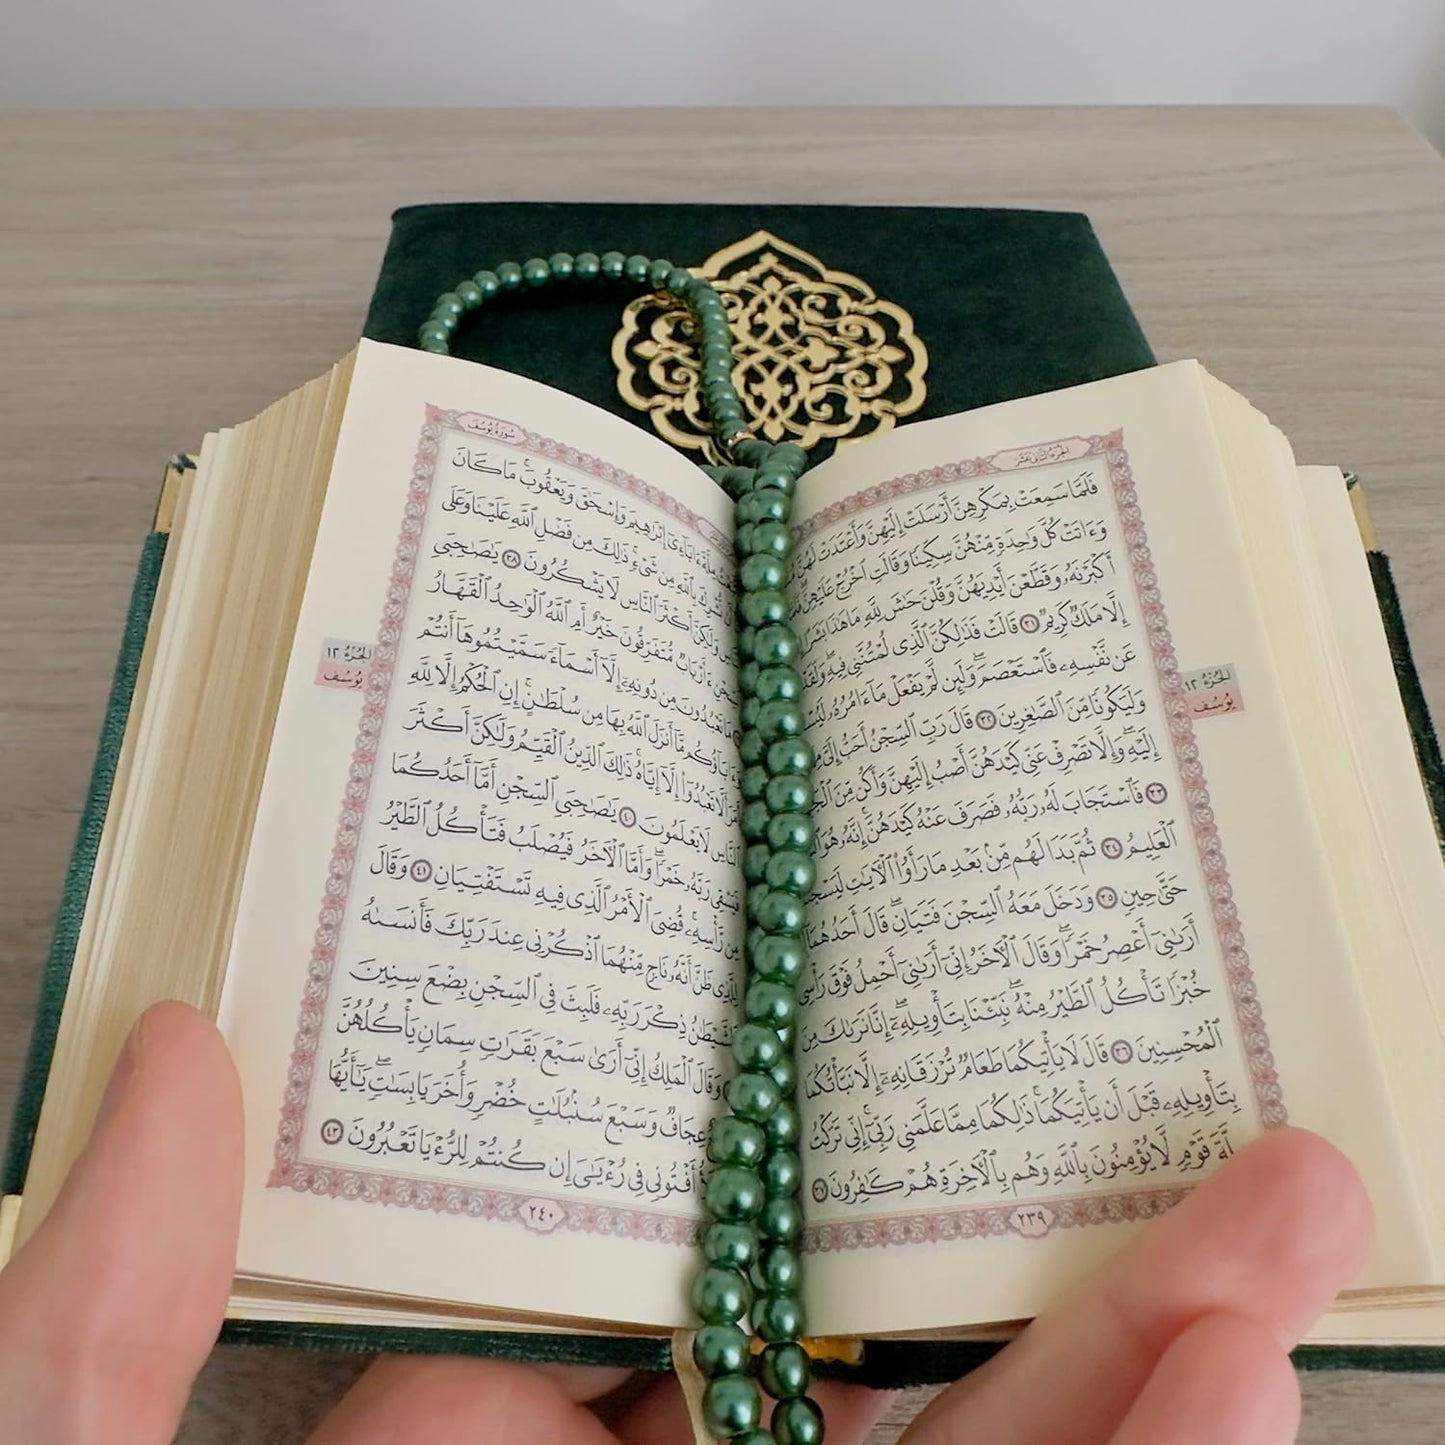 الجُزْءُ الثَّانِي عَشَرَ
فَلَمَّا سَمِعَتْ بِمَكْرِهِنَّ أَرْسَلَتْ إِلَيْهِنَّ وَأَعْتَدَتْ لَهُنَّ
وَءَاتَتْ كُلَّ وَٰحِدَةٍ مِّنْهُنَّ سِكِّينًا وَقَالَتِ ٱخْرُجْ عَلَيْهِنَّ
أَكْبَرْنَهُۥ وَقَطَّعْنَ أَيْدِيَهُنَّ وَقُلْنَ حَٰشَ لِلَّهِ مَا هَٰذَا بَشَرًا
إِلَّا مَلَكٌ كَرِيمٌ ٣١ قَالَتْ فَذَٰلِكُنَّ ٱلَّذِى لُمْتُنَّنِى فِيهِۖ
عَن نَّفْسِهِۦ فَٱسْتَعْصَمَۖ وَلَئِن لَّمْ يَفْعَلْ مَآ ءَامُرُهُۥ
وَلَيَكُونًا مِّنَ ٱلصَّٰغِرِينَ ٣٢ قَالَ رَبِّ ٱلسِّجْنُ أَحَبُّ إِلَىَّ
إِلَيْهِۖ وَإِلَّا تَصْرِفْ عَنِّى كَيْدَهُنَّ أَصْبُ إِلَيْهِنَّ وَأَكُن مِّنَ
٣٣ فَٱسْتَجَابَ لَهُۥ رَبُّهُۥ فَصَرَفَ عَنْهُ كَيْدَهُنَّۚ إِنَّهُۥ هُوَ
ٱلْعَلِيمُ ٣٤ ثُمَّ بَدَا لَهُم مِّنۢ بَعْدِ مَا رَأَوُا۟ ٱلْءَايَٰتِ
حَتَّىٰ حِينٍ ٣٥ وَدَخَلَ مَعَهُ ٱلسِّجْنَ فَتَيَانِۖ قَالَ أَحَدُهُمَآ
أَرَىٰنِىٓ أَعْصِرُ خَمْرًاۖ وَقَالَ ٱلْءَاخَرُ إِنِّىٓ أَرَىٰنِىٓ أَحْمِلُ فَوْقَ رَأْسِى
خُبْزًا تَأْكُلُ ٱلطَّيْرُ مِنْهُۖ نَبِّئْنَا بِتَأْوِيلِهِۦٓۖ إِنَّا نَرَىٰكَ مِنَ
ٱلْمُحْسِنِينَ ٣٦ قَالَ لَا يَأْتِيكُمَا طَعَامٌ تُرْزَقَانِهِۦٓ إِلَّا نَبَّأْتُكُمَا
بِتَأْوِيلِهِۦ قَبْلَ أَن يَأْتِيَكُمَاۚ ذَٰلِكُمَا مِمَّا عَلَّمَنِى رَبِّىٓۚ إِنِّى تَرَكْتُ
مِلَّةَ قَوْمٍ لَّا يُؤْمِنُونَ بِٱللَّهِ وَهُم بِٱلْءَاخِرَةِ هُمْ كَٰفِرُونَ ٣٧
٢٣٩
الجُزْءُ ١٢
يُوسُف
سُورَةُ يُوسُفَ
مِلَّةَ ءَابَآءِىٓ إِبْرَٰهِيمَ وَإِسْحَٰقَ وَيَعْقُوبَۚ مَا كَانَ
نُّشْرِكَ بِٱللَّهِ مِن شَىْءٍۚ ذَٰلِكَ مِن فَضْلِ ٱللَّهِ عَلَيْنَا وَعَلَى
وَلَٰكِنَّ أَكْثَرَ ٱلنَّاسِ لَا يَشْكُرُونَ ٣٨ يَٰصَٰحِبَىِ
ءَأَرْبَابٌ مُّتَفَرِّقُونَ خَيْرٌ أَمِ ٱللَّهُ ٱلْوَٰحِدُ ٱلْقَهَّارُ
مَا تَعْبُدُونَ مِن دُونِهِۦٓ إِلَّآ أَسْمَآءً سَمَّيْتُمُوهَآ أَنتُمْ
وَءَابَآؤُكُم مَّآ أَنزَلَ ٱللَّهُ بِهَا مِن سُلْطَٰنٍۚ إِنِ ٱلْحُكْمُ إِلَّا لِلَّهِ
أَمَرَ أَلَّا تَعْبُدُوٓا۟ إِلَّآ إِيَّاهُۚ ذَٰلِكَ ٱلدِّينُ ٱلْقَيِّمُ وَلَٰكِنَّ أَكْثَرَ
ٱلنَّاسِ لَا يَعْلَمُونَ ٤٠ يَٰصَٰحِبَىِ ٱلسِّجْنِ أَمَّآ أَحَدُكُمَا
فَيَسْقِى رَبَّهُۥ خَمْرًاۖ وَأَمَّا ٱلْءَاخَرُ فَيُصْلَبُ فَتَأْكُلُ ٱلطَّيْرُ
مِن رَّأْسِهِۦۚ قُضِىَ ٱلْأَمْرُ ٱلَّذِى فِيهِ تَسْتَفْتِيَانِ ٤١ وَقَالَ
لِلَّذِى ظَنَّ أَنَّهُۥ نَاجٍ مِّنْهُمَا ٱذْكُرْنِى عِندَ رَبِّكَ فَأَنسَىٰهُ
ٱلشَّيْطَٰنُ ذِكْرَ رَبِّهِۦ فَلَبِثَ فِى ٱلسِّجْنِ بِضْعَ سِنِينَ
وَقَالَ ٱلْمَلِكُ إِنِّىٓ أَرَىٰ سَبْعَ بَقَرَٰتٍ سِمَانٍ يَأْكُلُهُنَّ
عِجَافٌ وَسَبْعَ سُنۢبُلَٰتٍ خُضْرٍ وَأُخَرَ يَابِسَٰتٍۖ يَٰٓأَيُّهَا
أَفْتُونِى فِى رُءْيَٰىَ إِن كُنتُمْ لِلرُّءْيَا تَعْبُرُونَ ٤٣
٢٤٠
الجُزْءُ ١٢
يُوسُف